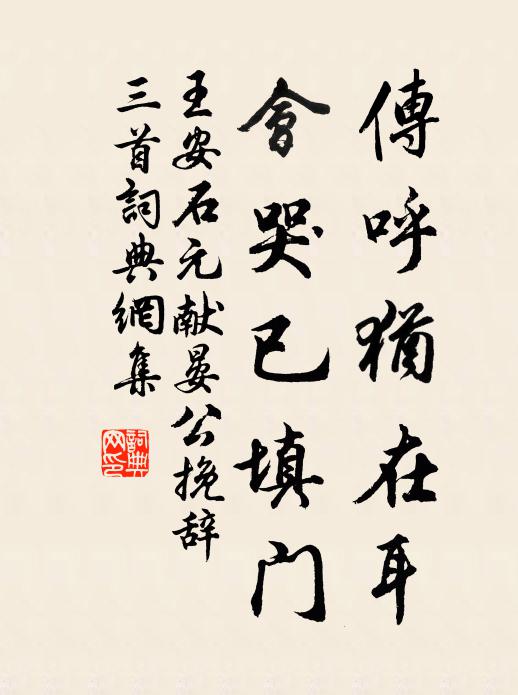 傳呼猶在耳
會哭已填門
王安石元献晏公挽辞
三首詞典網集
詞典网印